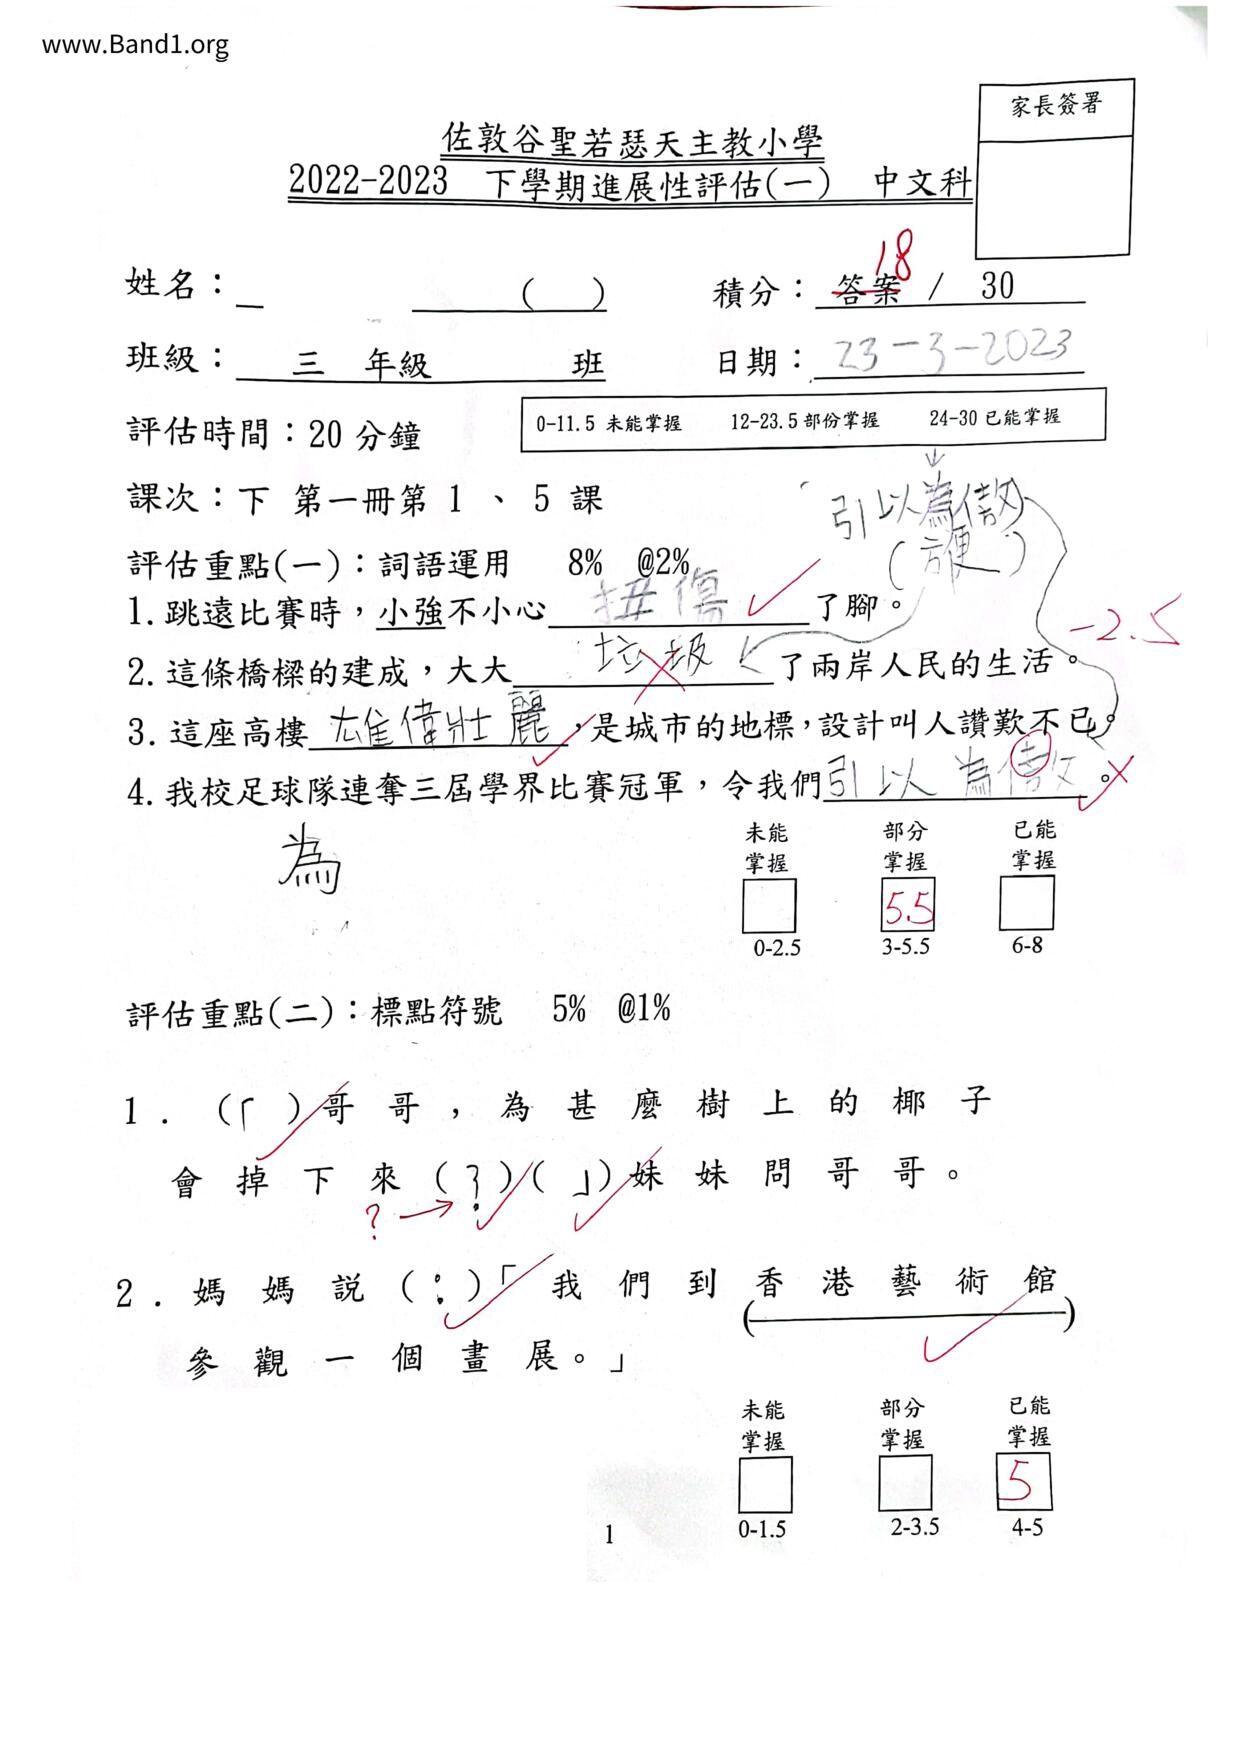 www.Band1.org
家長簽署
佐敦谷聖若瑟天主教小學
2022-2023 下學期進展性評估(一) 中文科
18
姓名： ( ) 積分：答案 / 30
班級： 三 年級 班 日期：23-3-2023
評估時間：20 分鐘
0-11.5 未能掌握 12-23.5 部份掌握 24-30 已能掌握
課次：下 第一冊第 1 、 5 課
引以為傲
(方便)
評估重點(一)：詞語運用 8% @2%
1. 跳遠比賽時，小強不小心扭傷了腳。
-2.5
2. 這條橋樑的建成，大大垃圾了兩岸人民的生活。
3. 這座高樓雄偉壯麗，是城市的地標，設計叫人讚歎不已。
4. 我校足球隊連奪三屆學界比賽冠軍，令我們引以為傲。
為
未能掌握 部分掌握 已能掌握
5.5
0-2.5 3-5.5 6-8
評估重點(二)：標點符號 5% @1%
1. (「)哥哥，為甚麼樹上的椰子
會掉下來(？)(」)妹妹問哥哥。
? →
2. 媽媽説(：)「我們到香港藝術館
( )
參觀一個畫展。」
未能掌握 部分掌握 已能掌握
5
0-1.5 2-3.5 4-5
1